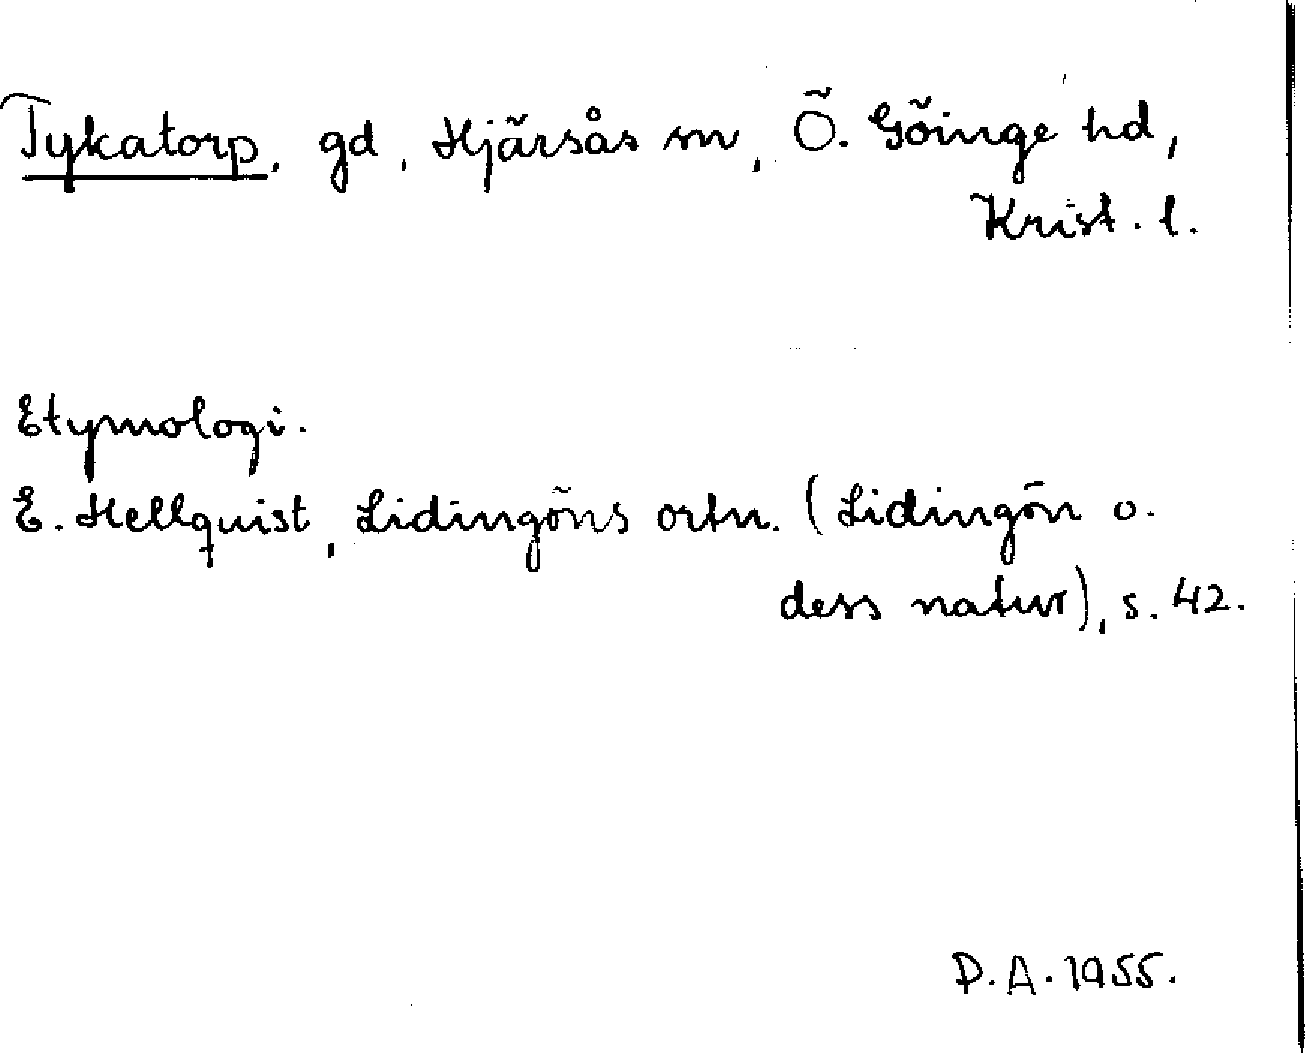 Tykatorp, gd, Hjärsås sn, Ö. Göinge hd,
Krist. l.
Etymologi.
E. Hellquist, Lidingöns ortn. (Lidingön o.
dess natur), s. 42.
D. A. 1955.